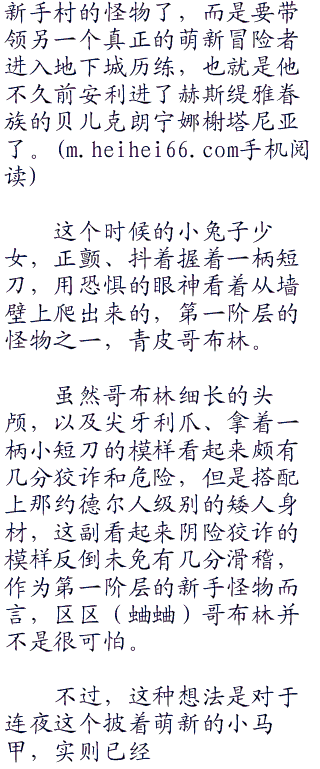 新手村的怪物了，而是要带
领另一个真正的萌新冒险者
进入地下城历练，也就是他
不久前安利进了赫斯缇雅眷
族的贝儿克朗宁娜榭塔尼亚
了。(m.heihei66.com手机阅
读)
这个时候的小兔子少
女，正颤、抖着握着一柄短
刀，用恐惧的眼神看着从墙
壁上爬出来的，第一阶层的
怪物之一，青皮哥布林。
虽然哥布林细长的头
颅，以及尖牙利爪、拿着一
柄小短刀的模样看起来颇有
几分狡诈和危险，但是搭配
上那约德尔人级别的矮人身
材，这副看起来阴险狡诈的
模样反倒未免有几分滑稽，
作为第一阶层的新手怪物而
言，区区（蛐蛐）哥布林并
不是很可怕。
不过，这种想法是对于
连夜这个披着萌新的小马
甲，实则已经